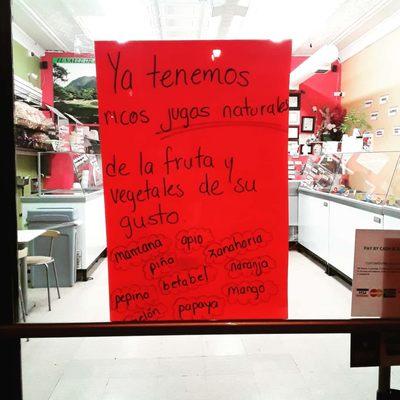 Ya tenemos
ricos jugas naturales
de la fruta y
vegetales de su
gusto.
manzana apio zanahoria
piña naranja
betabel
pepino mango
papaya
PAY
VISA